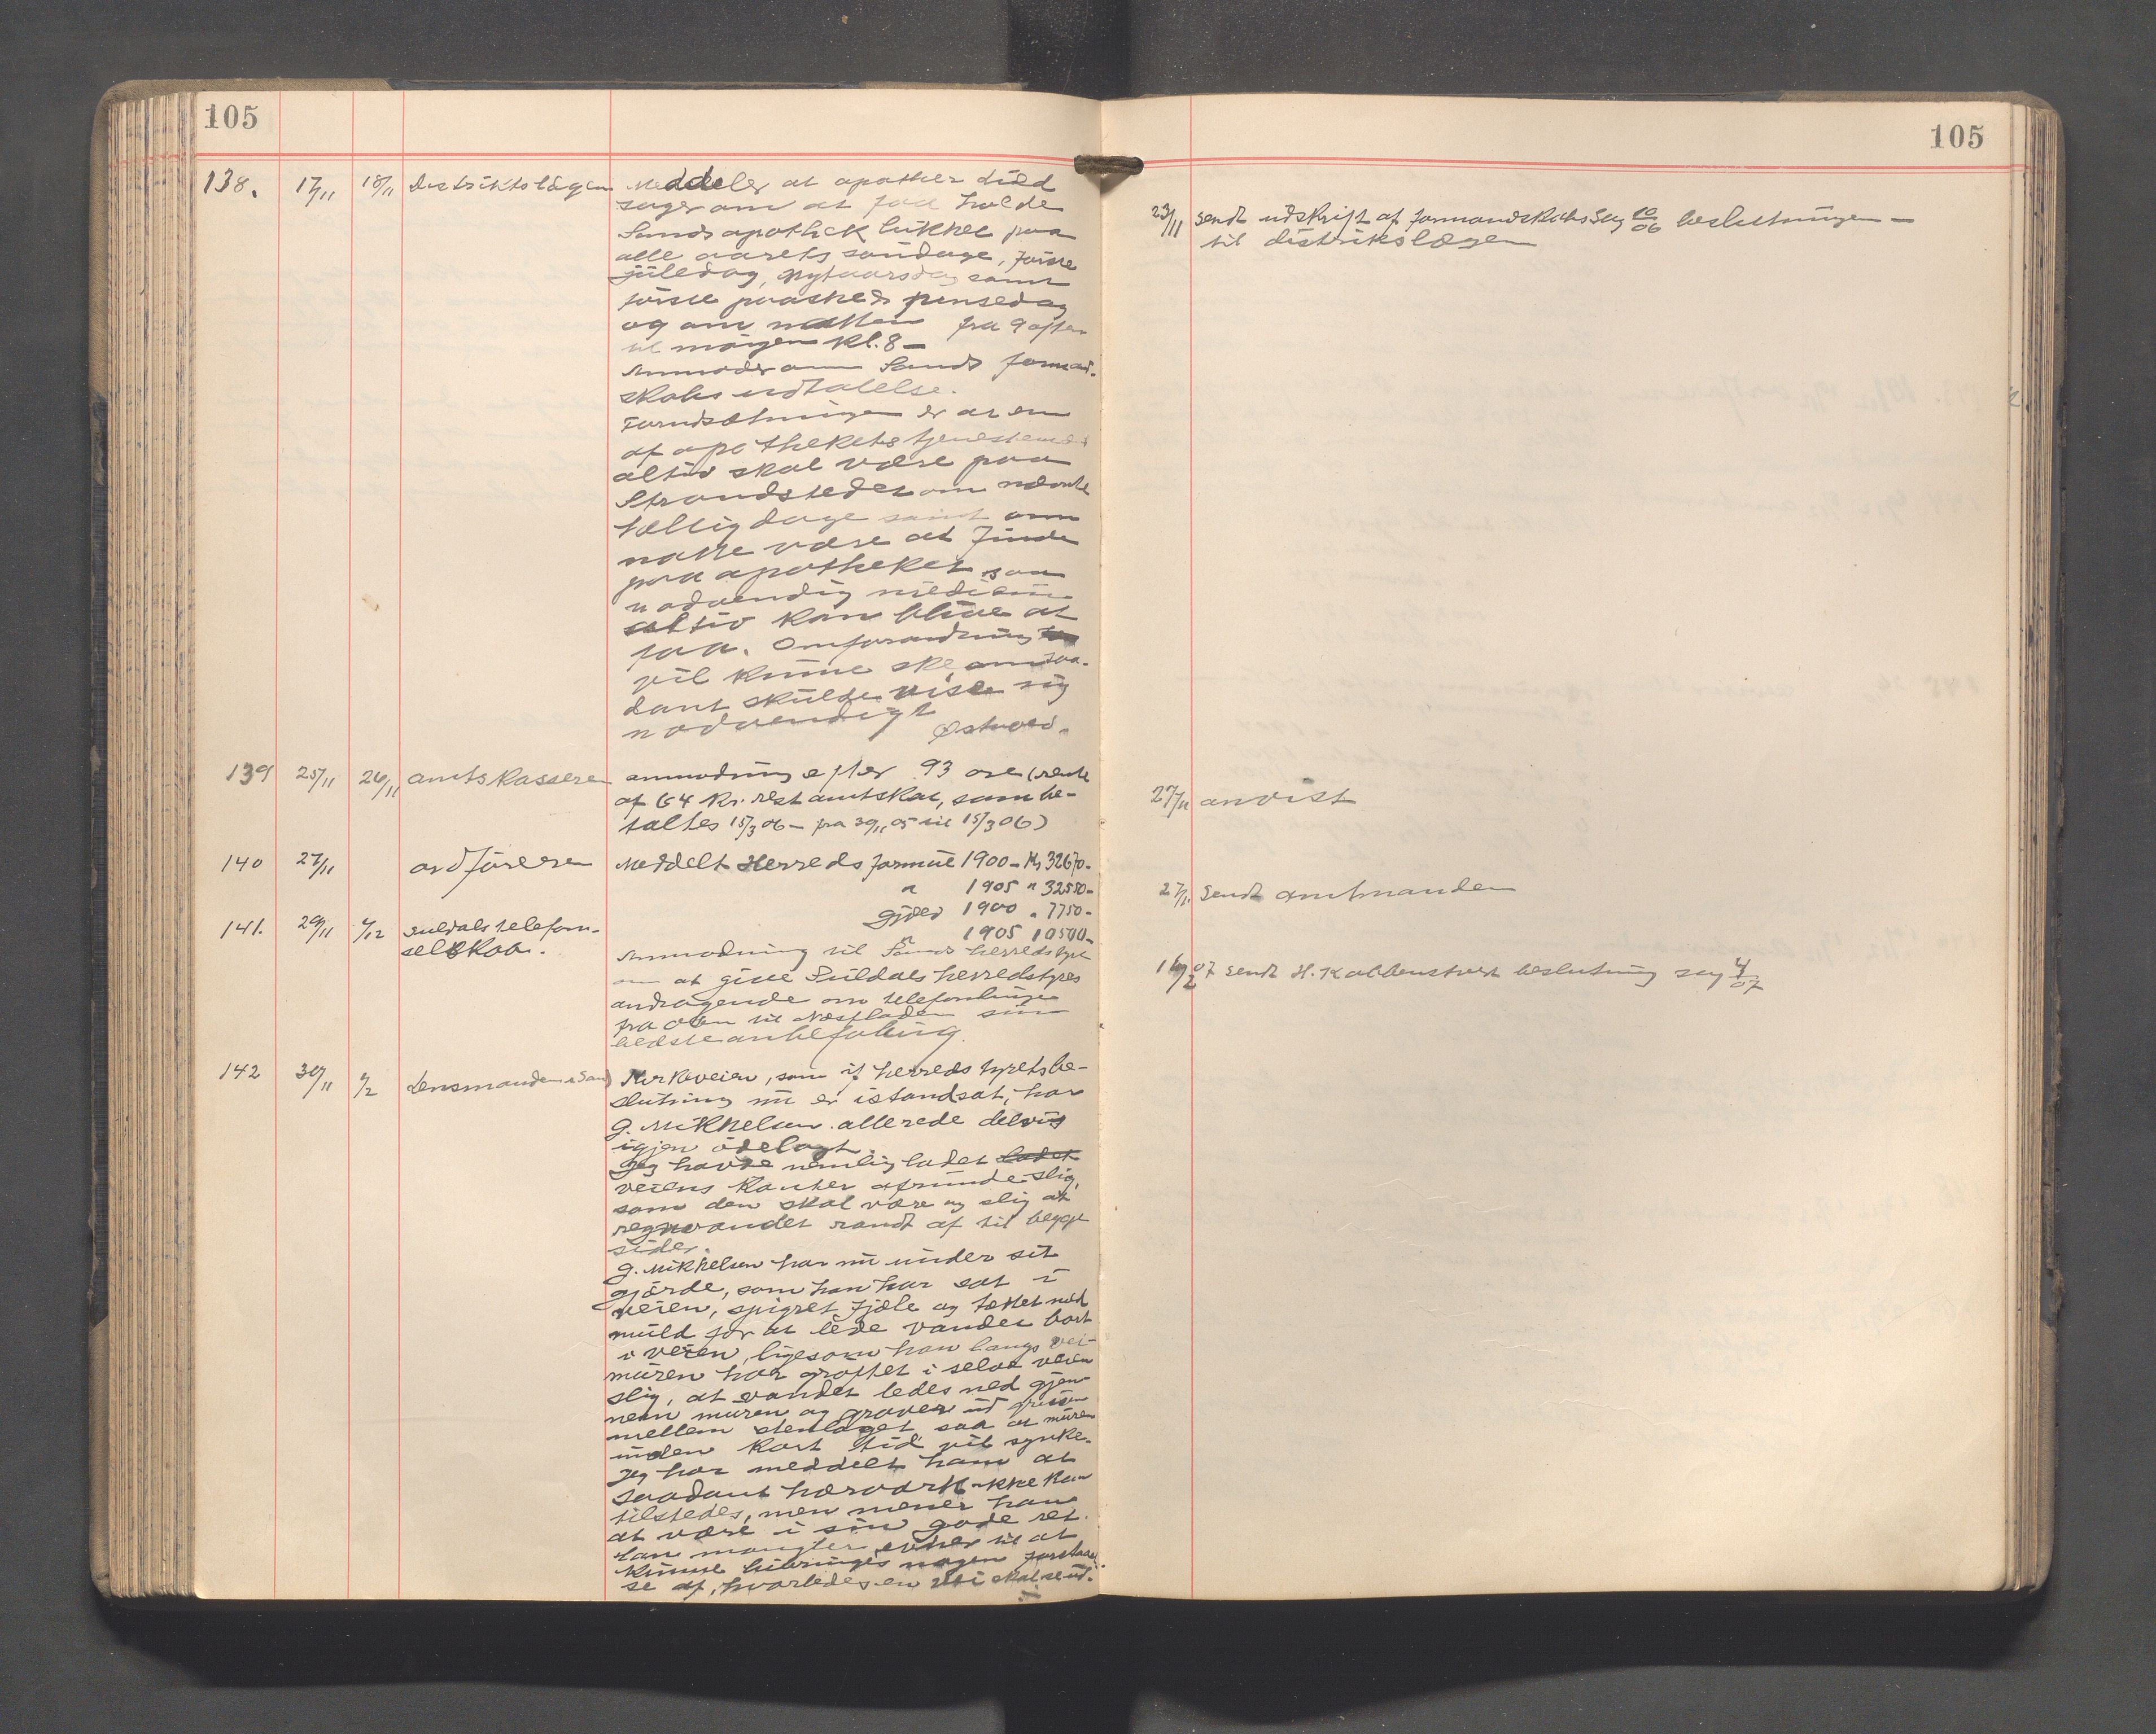 105
138. 17/11 18/11 Distriktslægen Meddeler at apother
søger om at faa holde
Sands apothek lukket paa
alle aarets søndage, første
juledag, nytaarsdag samt
første paaske & pinsedag
og om natten fra 9 aften
til morgen kl. 8 —
Anmoder om Sands formand-
skabs udtalelse.
Forudsætningen er at en
af apothekets tjenestemænd
altid skal være paa
Strandstedet om nævnte
hellig dage samt om
natte være at finde
paa apotheket saa
nødvendig medicin
altid kan blive at
faa. Omforandring
vil kunne ske om saa-
dant skulde vise sig
nødvendigt
Østvold.
139 25/11 26/11 amtskasseren anmodning efter 93 øre (rente
af 64 kr. rest amtskat, som be-
taltes 15/3 06 — fra 30/11 05 til 15/3 06)
140 27/11 ordføreren Meddelt Herreds formue 1900 - Kr 32670-
" 1905 " 32550-
Gjæld 1900 " 7750-
" 1905 10500-
141. 29/11 4/12 Suldals telefon-
selskab.
Anmodning til Sands herredstyre
om at give Suldals herredstyres
andragende om telefonlinje
fra Øen til Næsfladen sin
bedste anbefaling.
142 30/11 Lensmanden i Sand Kirkeveien, som if herredstyrets be-
slutning nu er istandsat, har
G. Mikkelsen allerede delvis
igjen ødelagt.
Jeg havde nemlig ladet ladet
veiens kanter afrunde slig,
som den skal være og slig at
regnvandet randt af til begge
sider.
G. Mikkelsen har nu under sit
gjærde, som han har sat i
veien, spigret fjæle og tættet med
muld for at lede vandet bort
i veien, ligesom han langs vei-
muren har grøftet i selve veien
slig, at vandet ledes ned gjen-
nem muren og graver ud grusen
mellem stenlaget saa at muren
inden kort tid vil synke.
Jeg har meddelt ham at
saadant hærværk ikke kan
tilstedes, men mener han
at være i sin gode ret.
Han mangler evner til at
kunne bibringes nogen forstaael
se af, hvorledes en vei skal se ud.
105
23/11 Sendt udskrift af formandskabs sag 10/06 beslutningen —
til distrikslægen
27/11 anvist
27/11 Sendt amtmanden
07 Sendt H. Kolbenstvedt beslutning sag 4/07